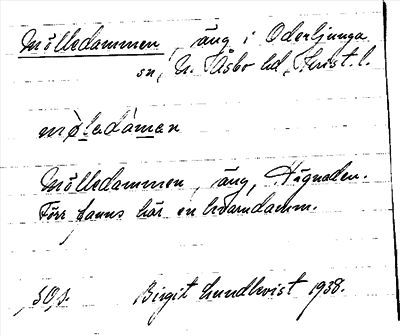 Mölledammen, äng i Oderljunga
sn, N. Åsbo hd, Krist. l.
mø̀ledàmen
Mölledammen, äng, Hägnaden.
Förr fanns här en kvarndamm.
Birgit Lundkvist 1938.